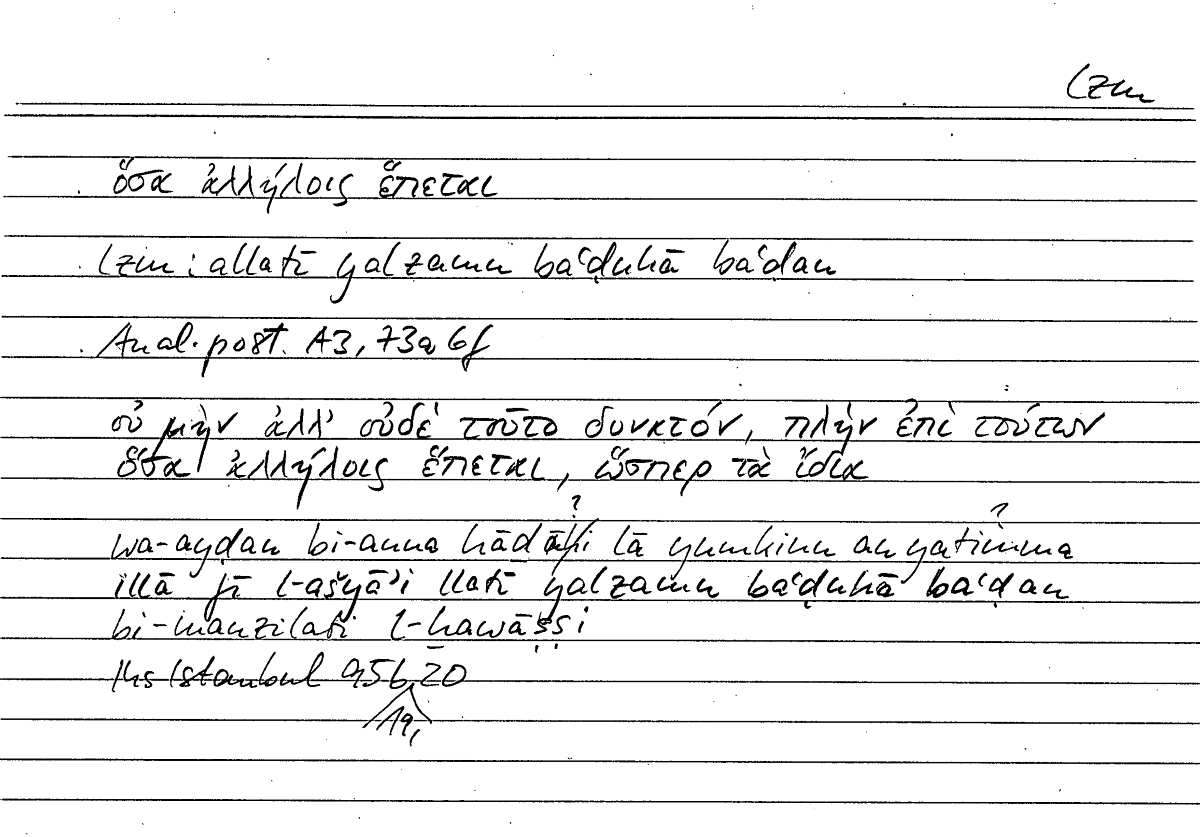 lzm
ὅσα ἀλλήλοις ἕπεται
lzm : allatī yalzamu baʿḍuhā baʿḍan
Anal. post. A3, 73a 6f
οὐ μὴν ἀλλ' οὐδὲ τοῦτο δυνατόν, πλὴν ἐπὶ τούτων
ὅσα ἀλλήλοις ἕπεται, ὥσπερ τὰ ἴδια
? ?
wa-ayḍan bi-anna hāḏā lā yumkinu an yatimma
illā fī l-ašyāʾi llatī yalzamu baʿḍuhā baʿḍan
bi-manzilati l-ḫawāṣṣi
Hs Istanbul 95b,20
19,